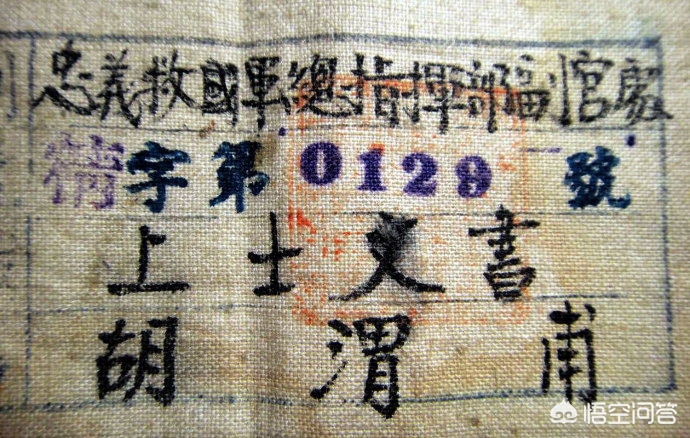 忠義救國軍總指揮部副官處
精字第0129號
上士文書
胡渭甫
悟空问答